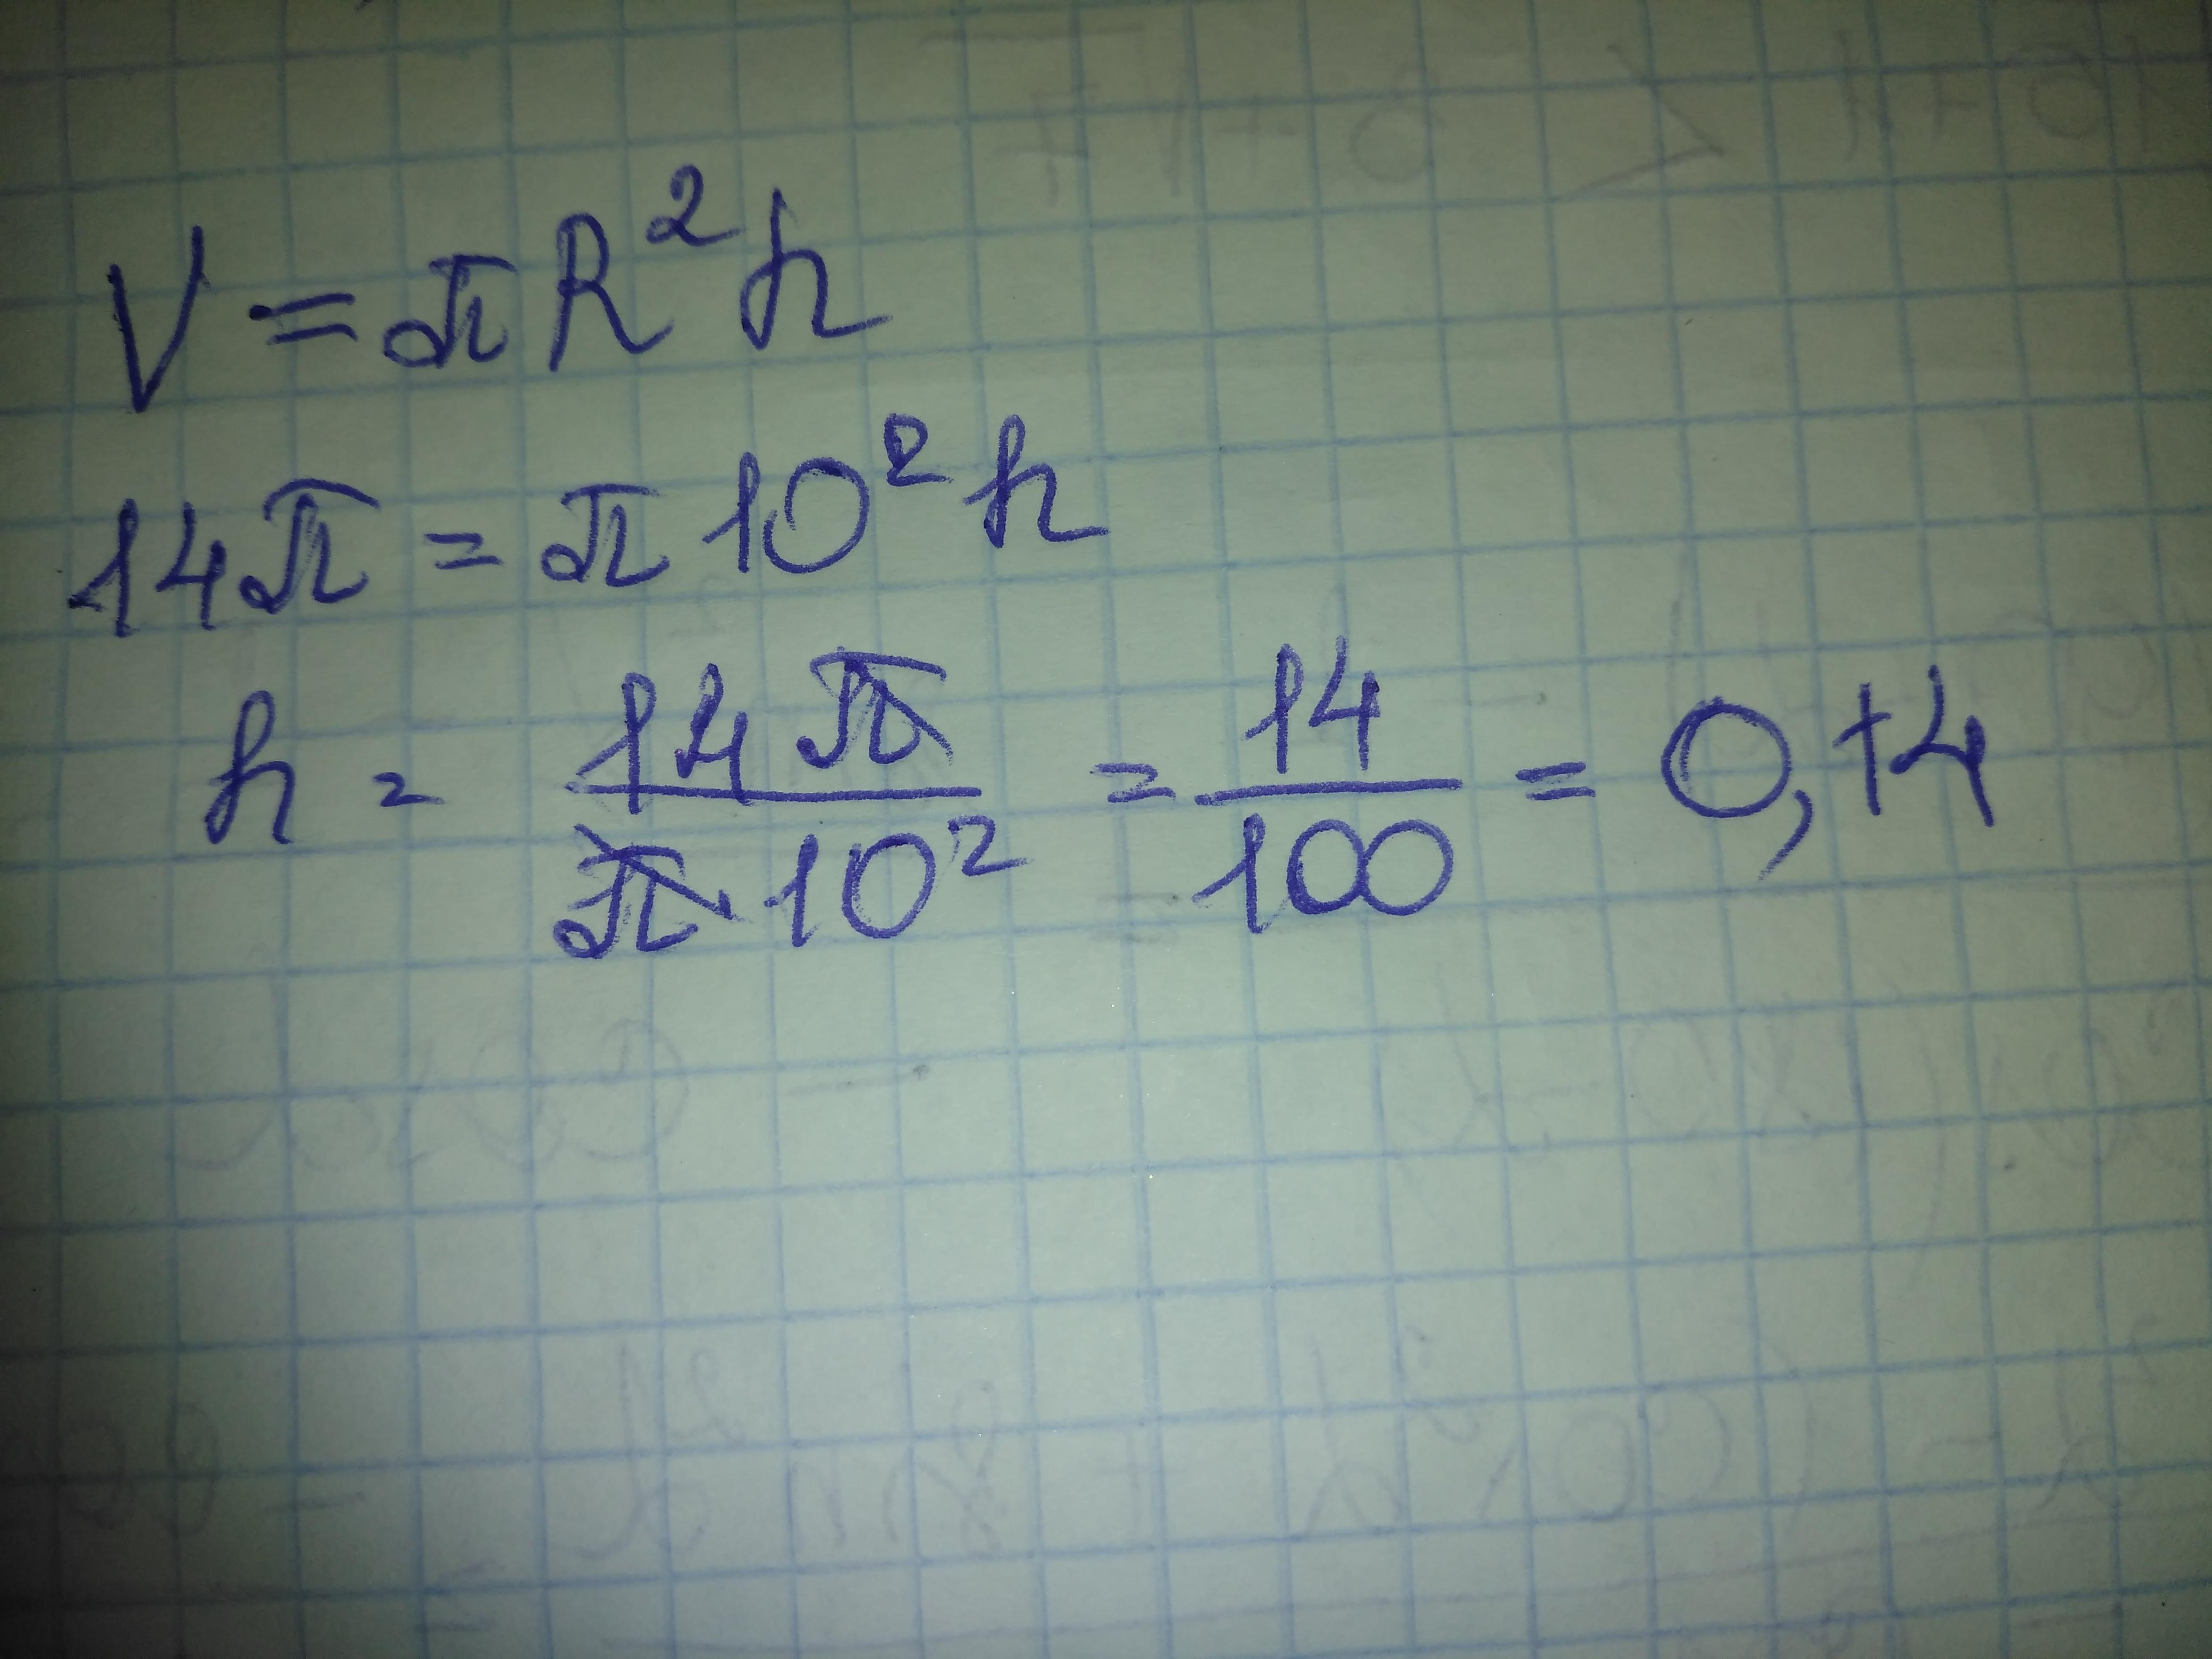 V = πR²h
14π = π10²h
h = 14π / π·10² = 14/100 = 0,14